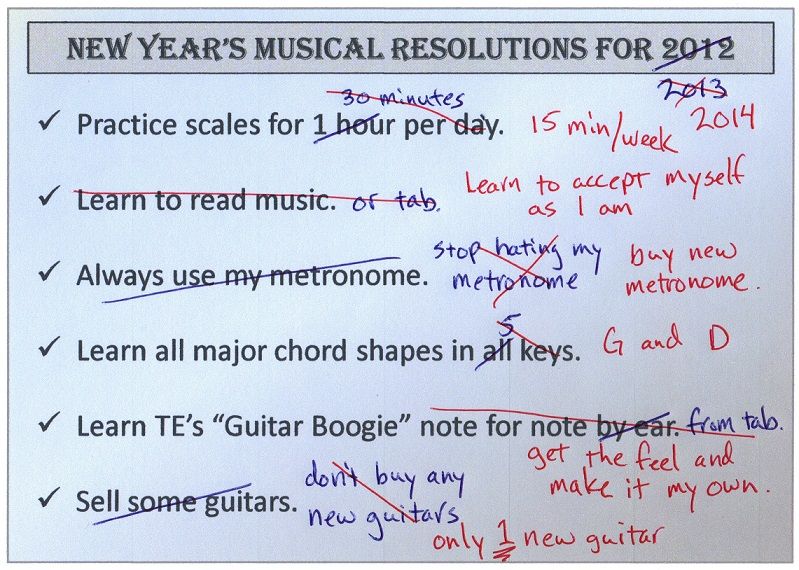 NEW YEAR'S MUSICAL RESOLUTIONS FOR 2012
2013
2014
30 minutes
✓ Practice scales for 1 hour per day. 15 min/week
✓ Learn to read music. or tab. Learn to accept myself
as I am
✓ Always use my metronome. stop hating my
metronome
buy new
metronome.
5
✓ Learn all major chord shapes in all keys. G and D
✓ Learn TE's “Guitar Boogie” note for note by ear. from tab.
get the feel and
make it my own.
✓ Sell some guitars. don't buy any
new guitars
only 1 new guitar